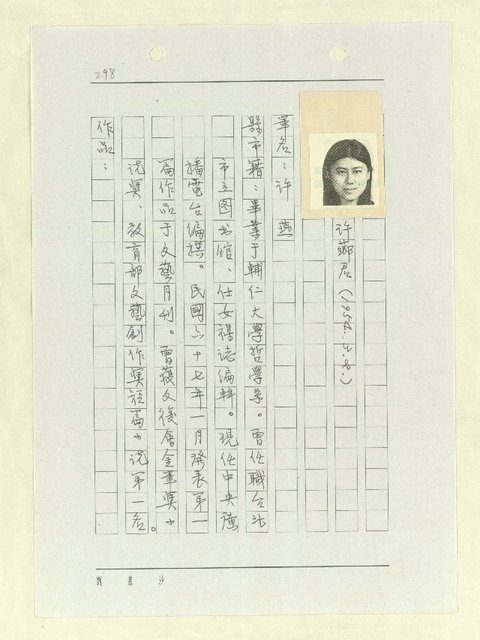 298
許薌君(1954.4.8.)
筆名：許燕
縣市籍：畢業于輔仁大學哲學系。曾任職台北
市立图书館、仕女襍誌編輯。現任中央廣
播電台編撰。民國六十七年一月發表第一
篇作品于文藝月刊。曾獲文復會金筆獎小
說獎、教育部文藝創作獎短篇小說第一名。
作品：
劉慕沙